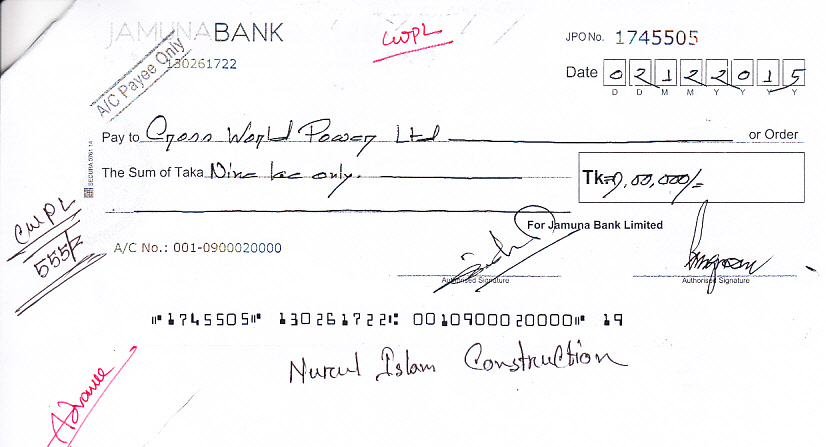 JAMUNA BANK
CWPL
JPO No. 1745505
130261722
A/C Payee Only
Date 02122015
D D M M Y Y Y Y
Pay to Cross World Power Ltd or Order
The Sum of Taka Nine lac only.
Tk=9,00,000/=
SECURA 5761 14
CWPL
555/2
For Jamuna Bank Limited
A/C No.: 001-0900020000
Authorised Signature
Authorised Signature
⑈1745505⑈ 130261722⑆ 0010900020000⑈ 19
Nurul Islam Construction
Advance